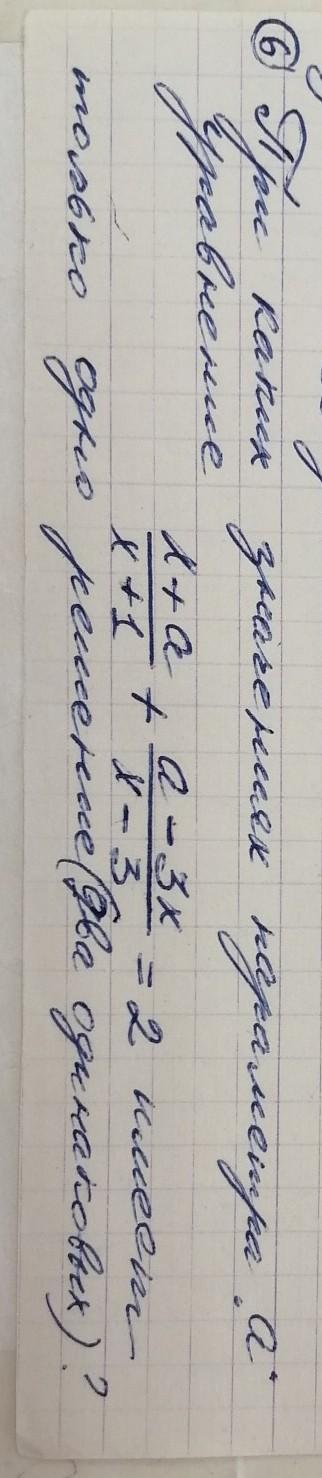 6 При каких значениях параметра „а“
уравнение
x + a / x + 1 + a - 3x / x - 3 = 2 имеет
только одно решение (два одинаковых)?